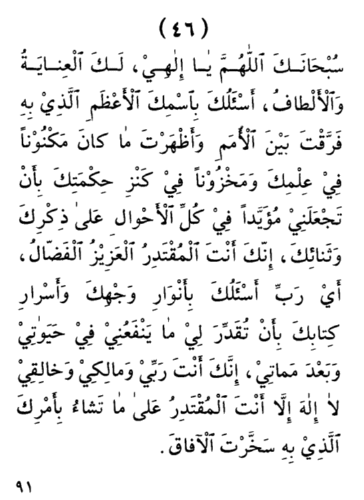 ( ٤٦ )
سُبْحَانَـكَ ٱللّٰهُـمَّ يٰـا إِلٰهِـيْ، لَـكَ ٱلْعِنايَـةُ
وَٱلْأَلْطافُ، أَسْئَلُكَ بِٱسْمِكَ ٱلْأَعْظَمِ ٱلَّذِيْ بِهِ
فَرَّقْتَ بَيْنَ ٱلْأُمَمِ وَأَظْهَرْتَ مٰا كانَ مَكْنُوْناً
فِيْ عِلْمِكَ وَمَخْزُوْناً فِيْ كَنْزِ حِكْمَتِكَ بِأَنْ
تَجْعَلَنِيْ مُؤَيَّداً فِيْ كُلِّ ٱلْأَحْوالِ عَلىٰ ذِكْرِكَ
وَثَنائِكَ، إِنَّكَ أَنْتَ ٱلْمُقْتَدِرُ ٱلْعَزِيْزُ ٱلْفَضّالُ،
أَيْ رَبِّ أَسْئَلُكَ بِأَنْوارِ وَجْهِكَ وَأَسْرارِ
كِتابِكَ بِأَنْ تُقَدِّرَ لِيْ مٰا يَنْفَعُنِيْ فِيْ حَيَوٰتِيْ
وَبَعْدَ مَماتِيْ، إِنَّكَ أَنْتَ رَبِّيْ وَمالِكِيْ وَخالِقِيْ
لٰا إِلٰهَ إِلَّا أَنْتَ ٱلْمُقْتَدِرُ عَلىٰ مٰا تَشاءُ بِأَمْرِكَ
ٱلَّذِيْ بِهِ سَخَّرْتَ ٱلْآفاقَ.
٩١